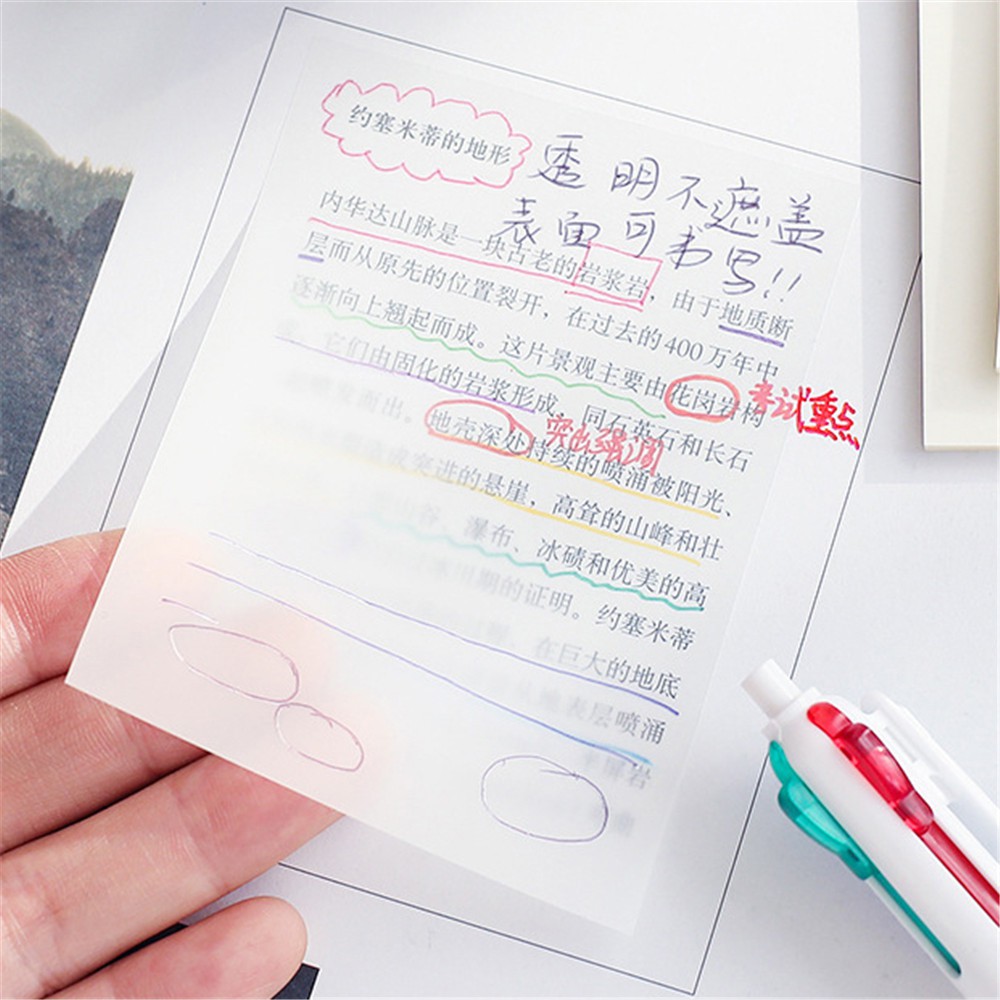 约塞米蒂的地形
透明不遮盖
表面可书写!!
内华达山脉是一块古老的岩浆岩，由于地质断
层而从原先的位置裂开，在过去的400万年中
逐渐向上翘起而成。这片景观主要由花岗岩构
考试重点
成。它们由固化的岩浆形成，同石英石和长石
而出。地壳深处持续的喷涌被阳光、
突出强调
突进的悬崖，高耸的山峰和壮
山谷、瀑布、冰碛和优美的高
冰川期的证明。约塞米蒂
在巨大的地底
地表层喷涌
岩